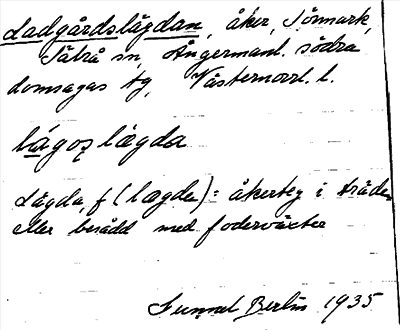 Ladgårdslägdan, åker, Sörmark,
Säbrå sn, Ångermanl. södra
domsagas tg, Västernorrl. l.
lágoʐlægda
Lägda, f (lægda) = åkerteg i träde
eller besådd med foderväxter
Gunnel Berlin 1935